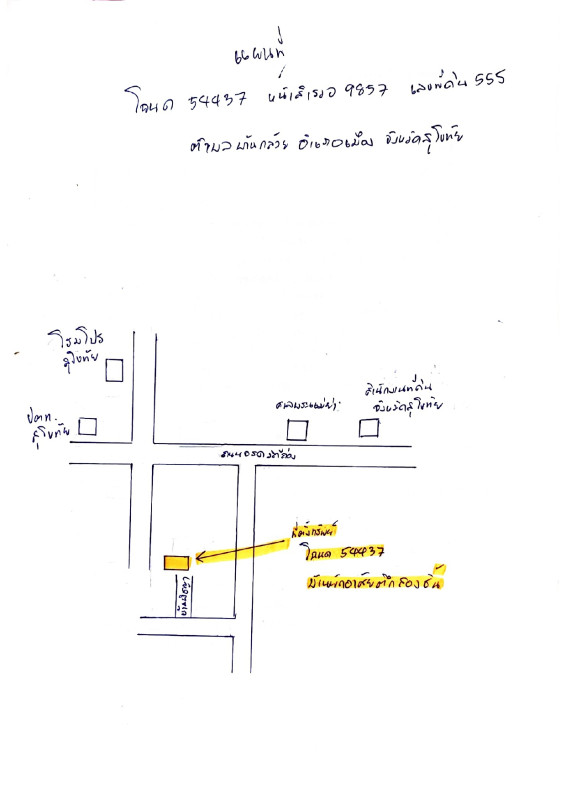 แผนที่
โฉนด 54437 หน้าสำรวจ 9857 เลขที่ดิน 555
ตำบลบ้านกล้วย อำเภอเมือง จังหวัดสุโขทัย
โฮมโปร
สุโขทัย
ปตท.
สุโขทัย
ศาลพระแม่ย่า
สำนักงานที่ดิน
จังหวัดสุโขทัย
ถนน
ที่ตั้งทรัพย์
โฉนด 54437
บ้านพักอาศัยตึกสองชั้น